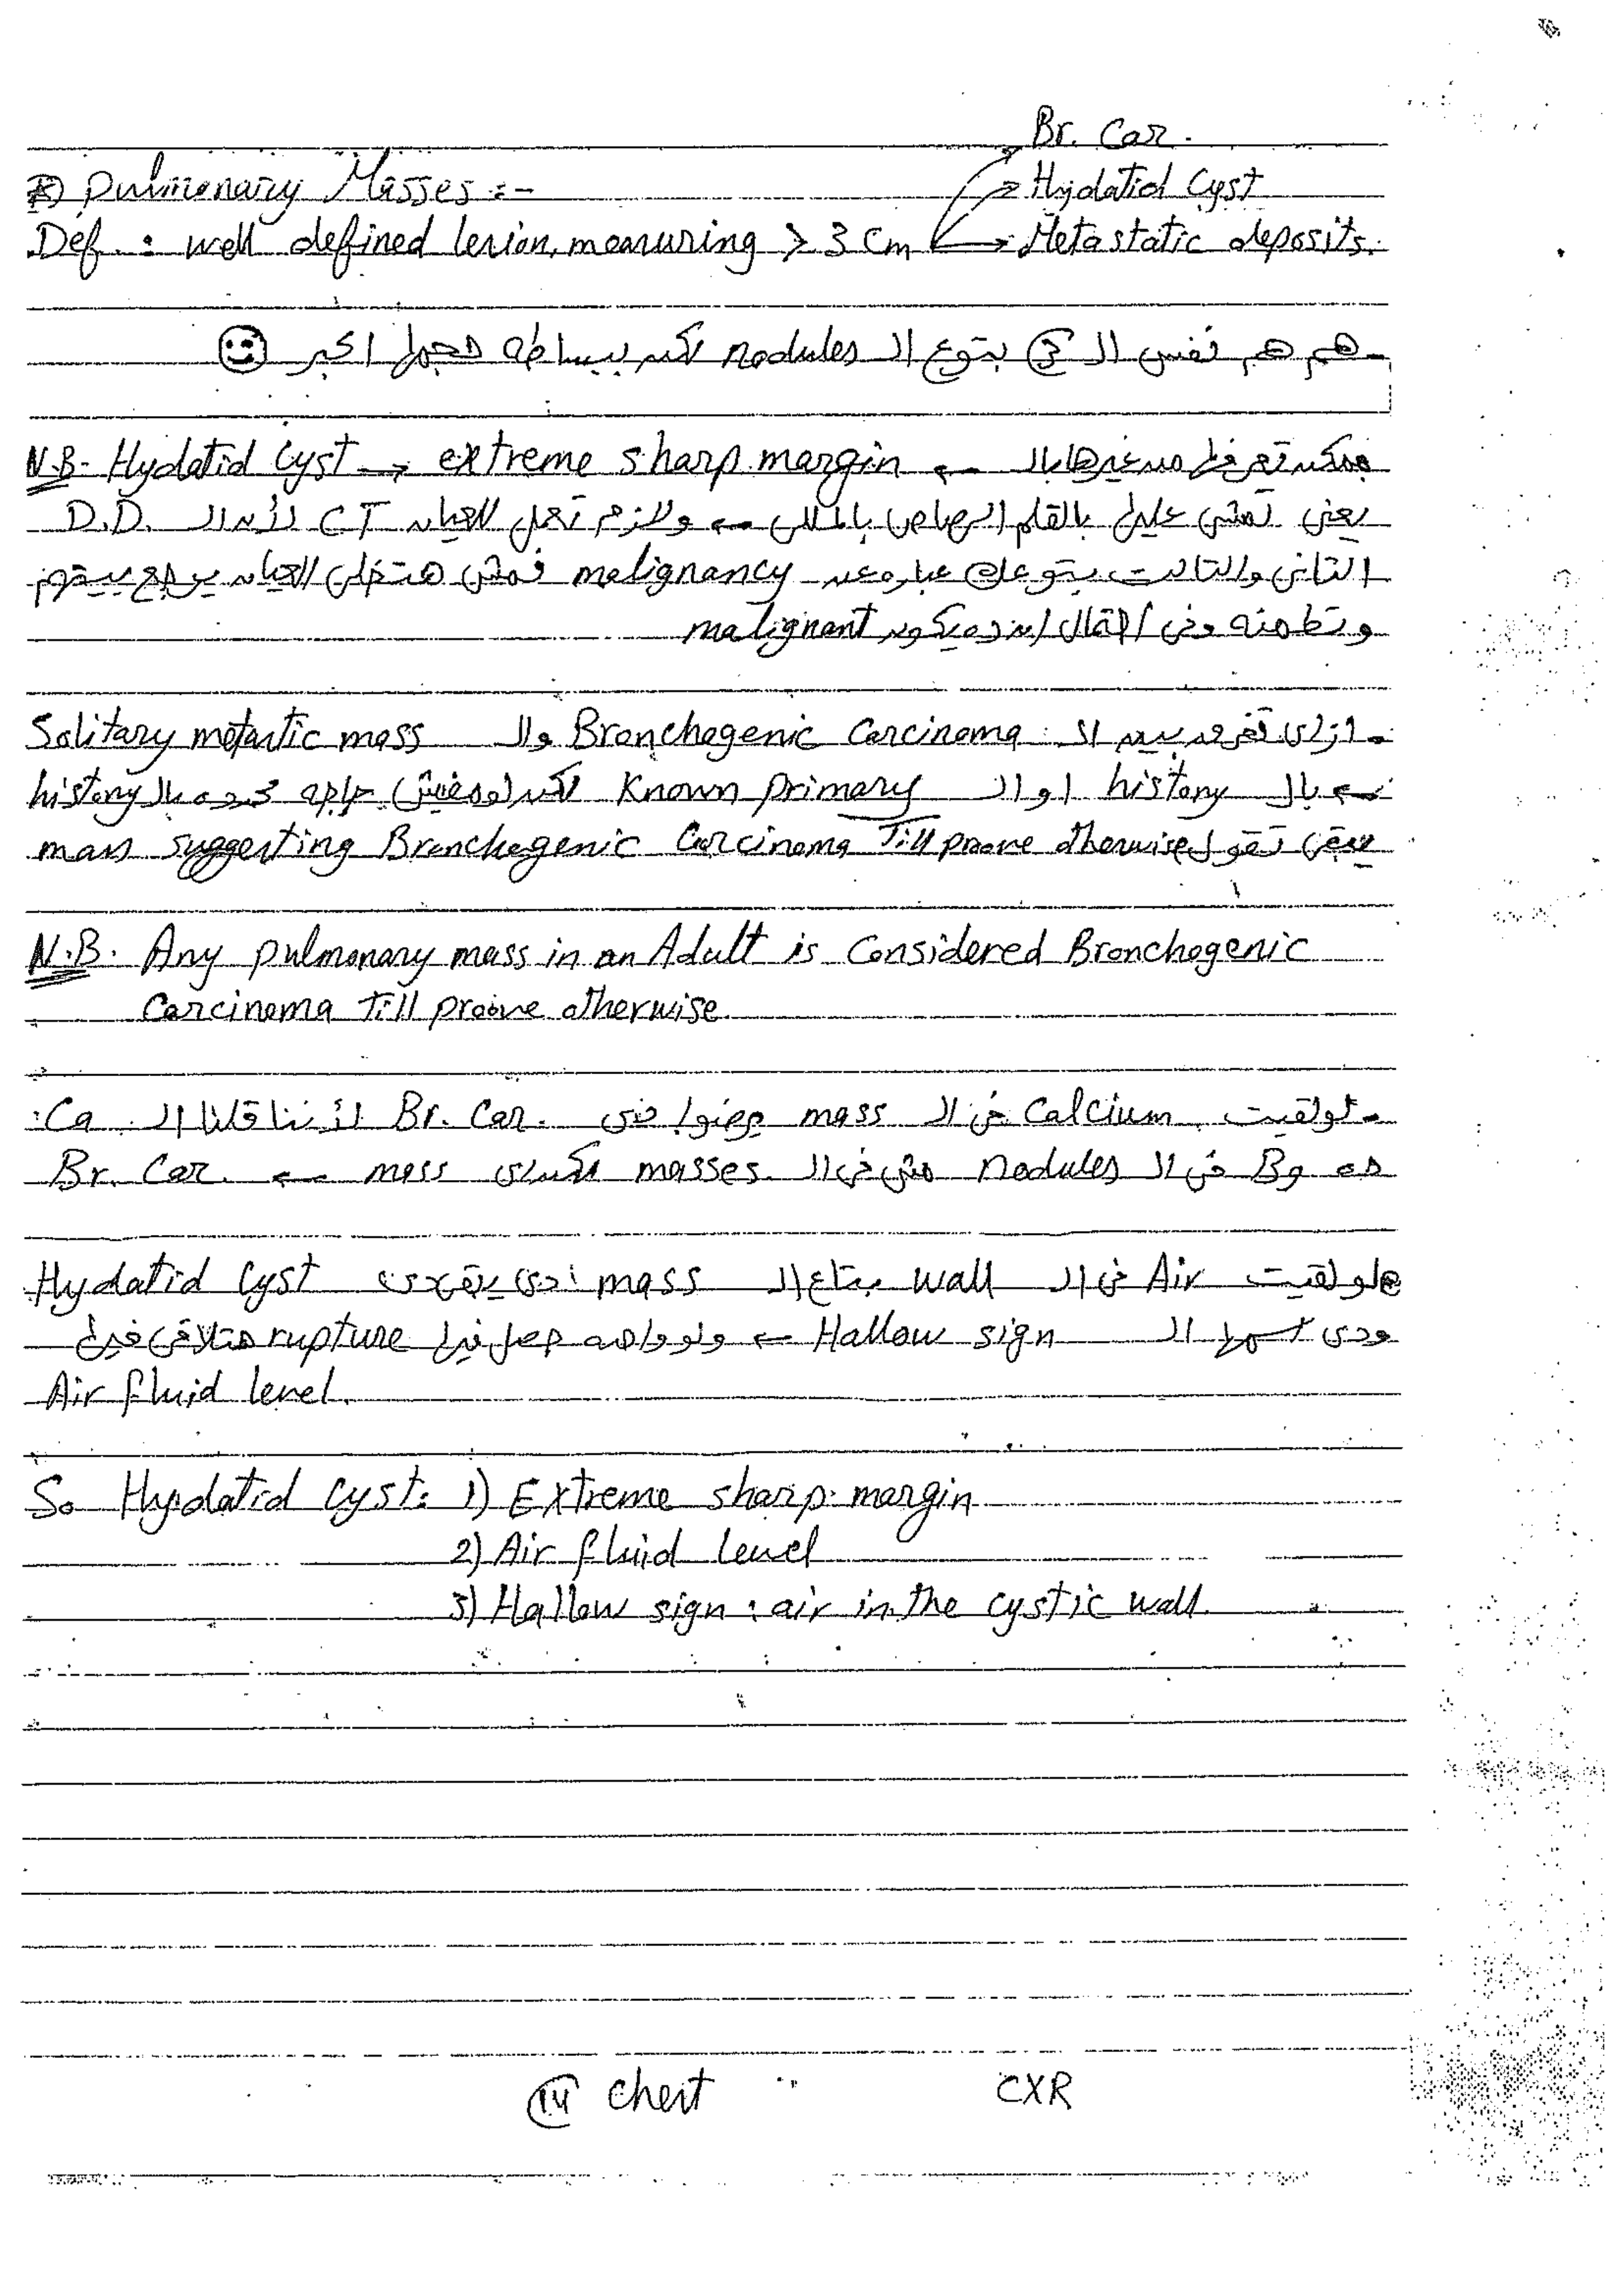 Br. Car.
Pulmonary Masses :-
Hydatid Cyst
Def. : well defined lesion, measuring > 3 cm
Metastatic deposits.
- هم هم نفس ال 3 بتوع ال nodules لكن ببساطه حجمها اكبر
N.B. Hydatid Cyst → extreme sharp margin ← ممكن تعرفها من غيرها بال
يعنى تمشى عليها بالقلم الرصاص بالمللى ← ولازم تعمل للعيان CT لأن ال D.D.
التانى والتالت بتوعك عباره عن malignancy فمش هتخلى العيان
وتطمنه وفى malignant
- ازاى تفرق بين ال Bronchogenic Carcinoma وال Solitary metastic mass
← بال history او ال Known primary لكن لو مفيش حاجه محدده بال history
يبقى تقول mass suggesting Bronchogenic Carcinoma Till proove otherwise
N.B. Any pulmonary mass in an Adult is Considered Bronchogenic
Carcinoma Till proove otherwise
- لو لقيت Calcium فى ال mass برضوا دى Br. Car. لأننا قلنا ال Ca
ده وB فى ال nodules مش فى ال masses لكن دى mass ← Br. Car.
لو لقيت Air فى ال wall بتاع ال mass دى Hydatid Cyst
ودى اسمها ال Hallow sign ← ولو حصل فيها rupture هتلاقى فيها
Air fluid level.
So Hydatid Cyst: 1) Extreme sharp margin
2) Air fluid level
3) Hallow sign : air in the cystic wall.
14 Chest CXR